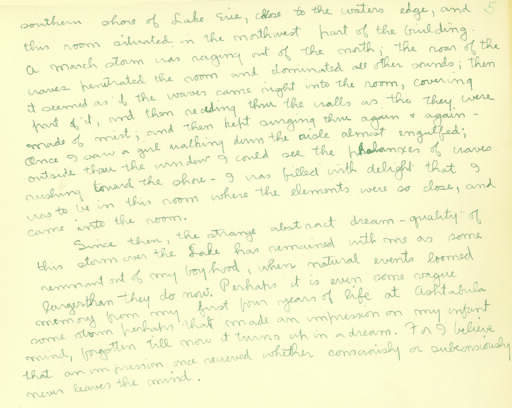 5
southern shore of Lake Erie, close to the waters edge, and
this room situated in the northwest part of the building.
A March storm was raging out of the north; the roar of the
waves penetrated the room and dominated all other sounds; then
it seemed as if the waves came right into the room, covering
part of it, and then receding thru the walls as tho they were
made of mist; and then kept surging thru again & again -
Once I saw a girl walking down the aisle almost engulfed;
outside thru the window I could see the phalanxes of waves
rushing toward the shore - I was filled with delight that I
was to be in this room where the elements were so close, and
came into the room.
Since then, the strange abstract dream-quality of
this storm over the Lake has remained with me as some
remnant out of my boyhood, when natural events loomed
larger than they do now. Perhaps it is even some vague
memory from my first four years of life at Ashtabula
some storm perhaps that made an impression on my infant
mind, forgotten till now it turns up in a dream. For I believe
that an impression once received whether consciously or subconsciously
never leaves the mind.